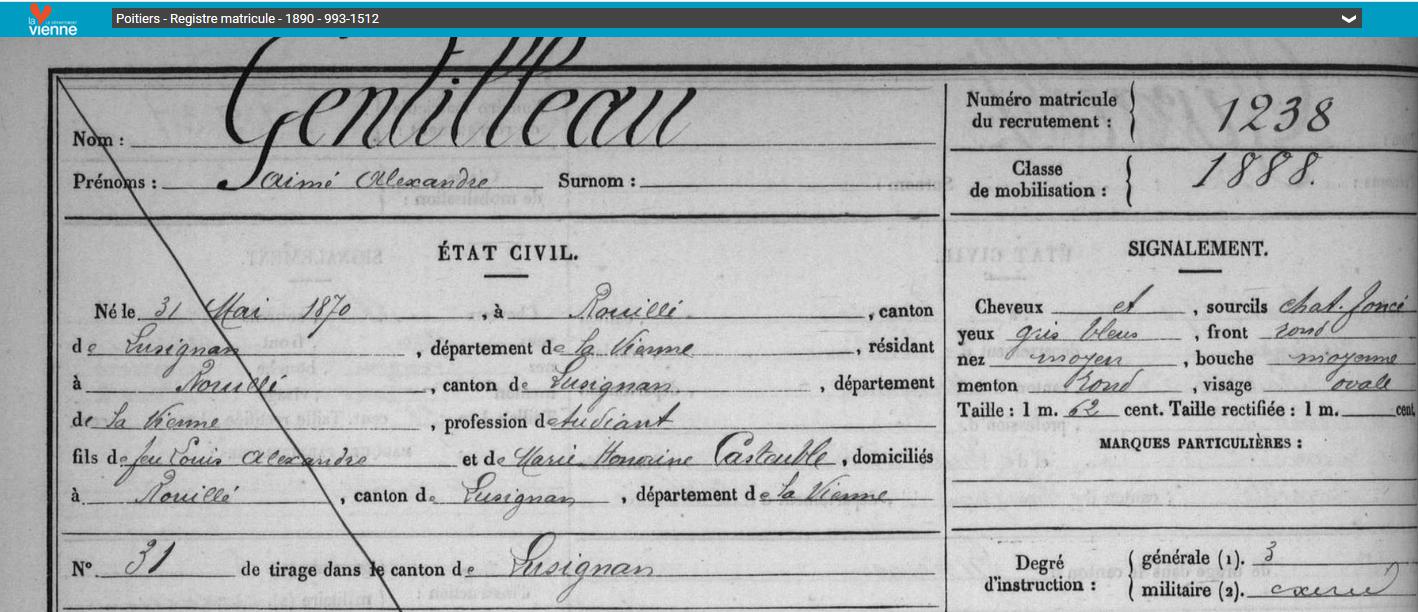 la vienne
LE DÉPARTEMENT
Poitiers - Registre matricule - 1890 - 993-1512
Nom : Gentilleau
Prénoms : Aimé Alexandre Surnom :
Numéro matricule
du recrutement : 1238
Classe
de mobilisation : 1888.
ÉTAT CIVIL.
Né le 31 Mai 1870, à Rouillé, canton
de Lusignan, département de la Vienne, résidant
à Rouillé, canton de Lusignan, département
de la Vienne, profession d'étudiant
fils de feu Louis Alexandre et de Marie Honorine, domiciliés
à Rouillé, canton de Lusignan, département de la Vienne
N° 31 de tirage dans le canton de Lusignan
SIGNALEMENT.
Cheveux et, sourcils chat. foncé
yeux gris bleus, front rond
nez moyen, bouche moyenne
menton rond, visage ovale
Taille : 1 m. 62 cent. Taille rectifiée : 1 m. cent.
MARQUES PARTICULIÈRES :
Degré
d'instruction :
générale (1). 3
militaire (2).